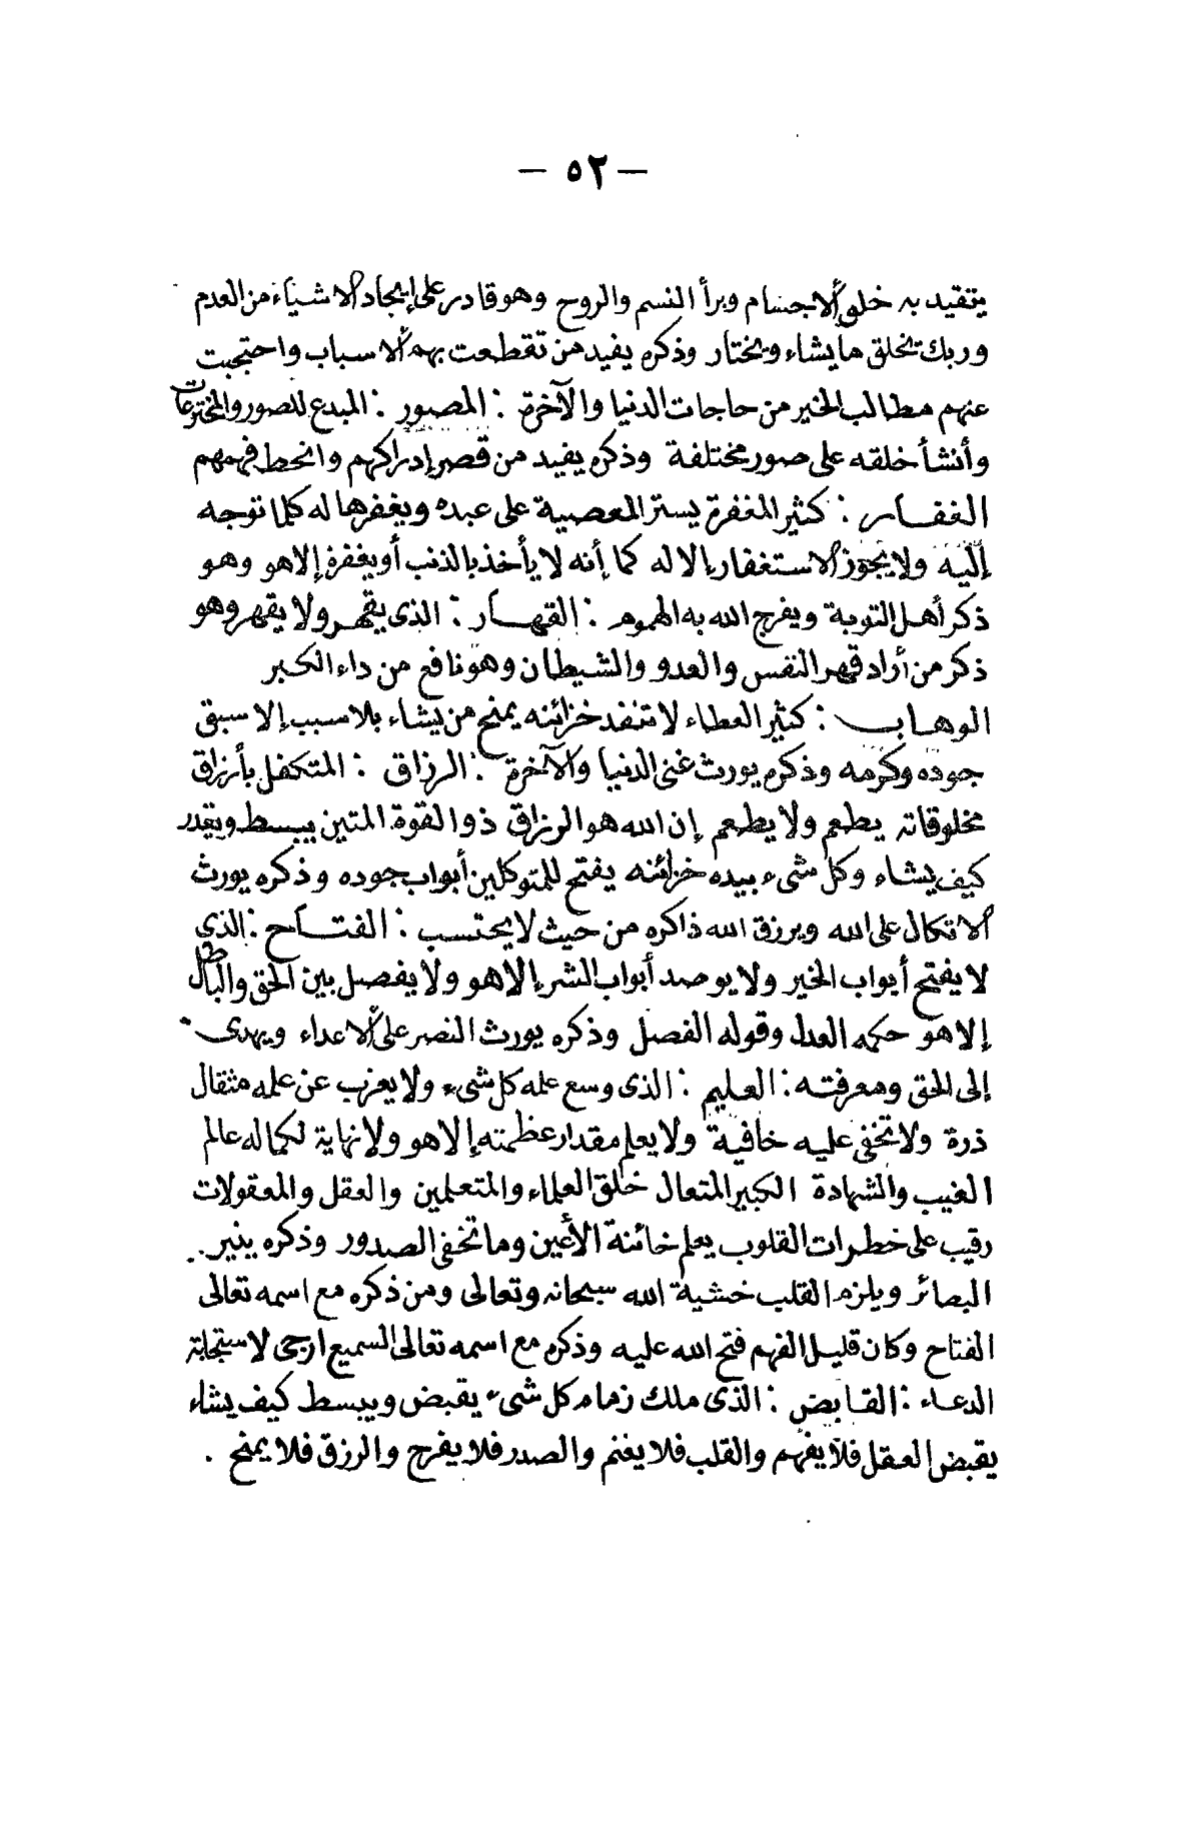 — ٥٢ —
يتقيد به خلق الأجسام وبرأ النسم والروح وهو قادر على إيجاد الأشياء من العدم
وربك يخلق ما يشاء ويختار وذكره يفيد من تقطعت بهم الأسباب واحتجبت
عنهم مطالب الخير من حاجات الدنيا والآخرة : المصور : المبدع للصور والمخترعات
وأنشأ خلقه على صور مختلفة وذكره يفيد من قصر إدراكهم وانحط فهمهم
الغفار : كثير المغفرة يستر المعصية على عبده ويغفرها له كلما توجه
إليه ولا يجوز الاستغفار إلا له كما أنه لا يأخذ بالذنب أو يغفره إلا هو وهو
ذكر أهل التوبة ويفرج الله به الهموم : القهار : الذى يقهر ولا يقهر وهو
ذكر من أراد قهر النفس والعدو والشيطان وهو نافع من داء الكبر
الوهاب : كثير العطاء لا تنفد خزائنه يمنح من يشاء بلا سبب إلا سبق
جوده وكرمه وذكره يورث غنى الدنيا والآخرة : الرزاق : المتكفل بأرزاق
مخلوقاته يطعم ولا يطعم إن الله هو الرزاق ذو القوة المتين يبسط ويقدر
كيف يشاء وكل شىء بيده خزائنه يفتح للمتوكلين أبواب جوده وذكره يورث
الاتكال على الله ويرزق الله ذاكره من حيث لا يحتسب : الفتاح : الذى
لا يفتح أبواب الخير ولا يوصد أبواب الشر إلا هو ولا يفصل بين الحق والباطل
إلا هو حكمه العدل وقوله الفصل وذكره يورث النصر على الأعداء ويهدى
إلى الحق ومعرفته : العليم : الذى وسع علمه كل شىء ولا يعزب عن علمه مثقال
ذرة ولا تخفى عليه خافية ولا يعلم مقدار عظمته إلا هو ولا نهاية لكماله عالم
الغيب والشهادة الكبير المتعال خلق العلماء والمتعلمين والعقل والمعقولات
رقيب على خطرات القلوب يعلم خائنة الأعين وما تخفى الصدور وذكره ينير
البصائر ويلزم القلب خشية الله سبحانه وتعالى ومن ذكره مع اسمه تعالى
الفتاح وكان قليل الفهم فتح الله عليه وذكره مع اسمه تعالى السميع ارجى لاستجابة
الدعاء : القابض : الذى ملك زمام كل شىء يقبض ويبسط كيف يشاء
يقبض العقل فلا يفهم والقلب فلا يغنم والصدر فلا يفرج والرزق فلا يمنح .